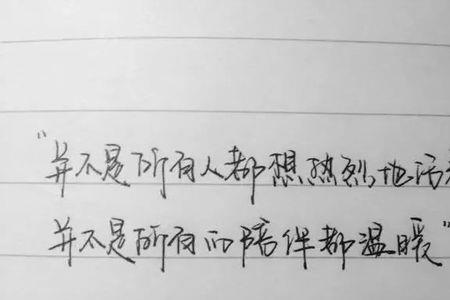 “并不是所有人都想热烈地活
并不是所有的陪伴都温暖”